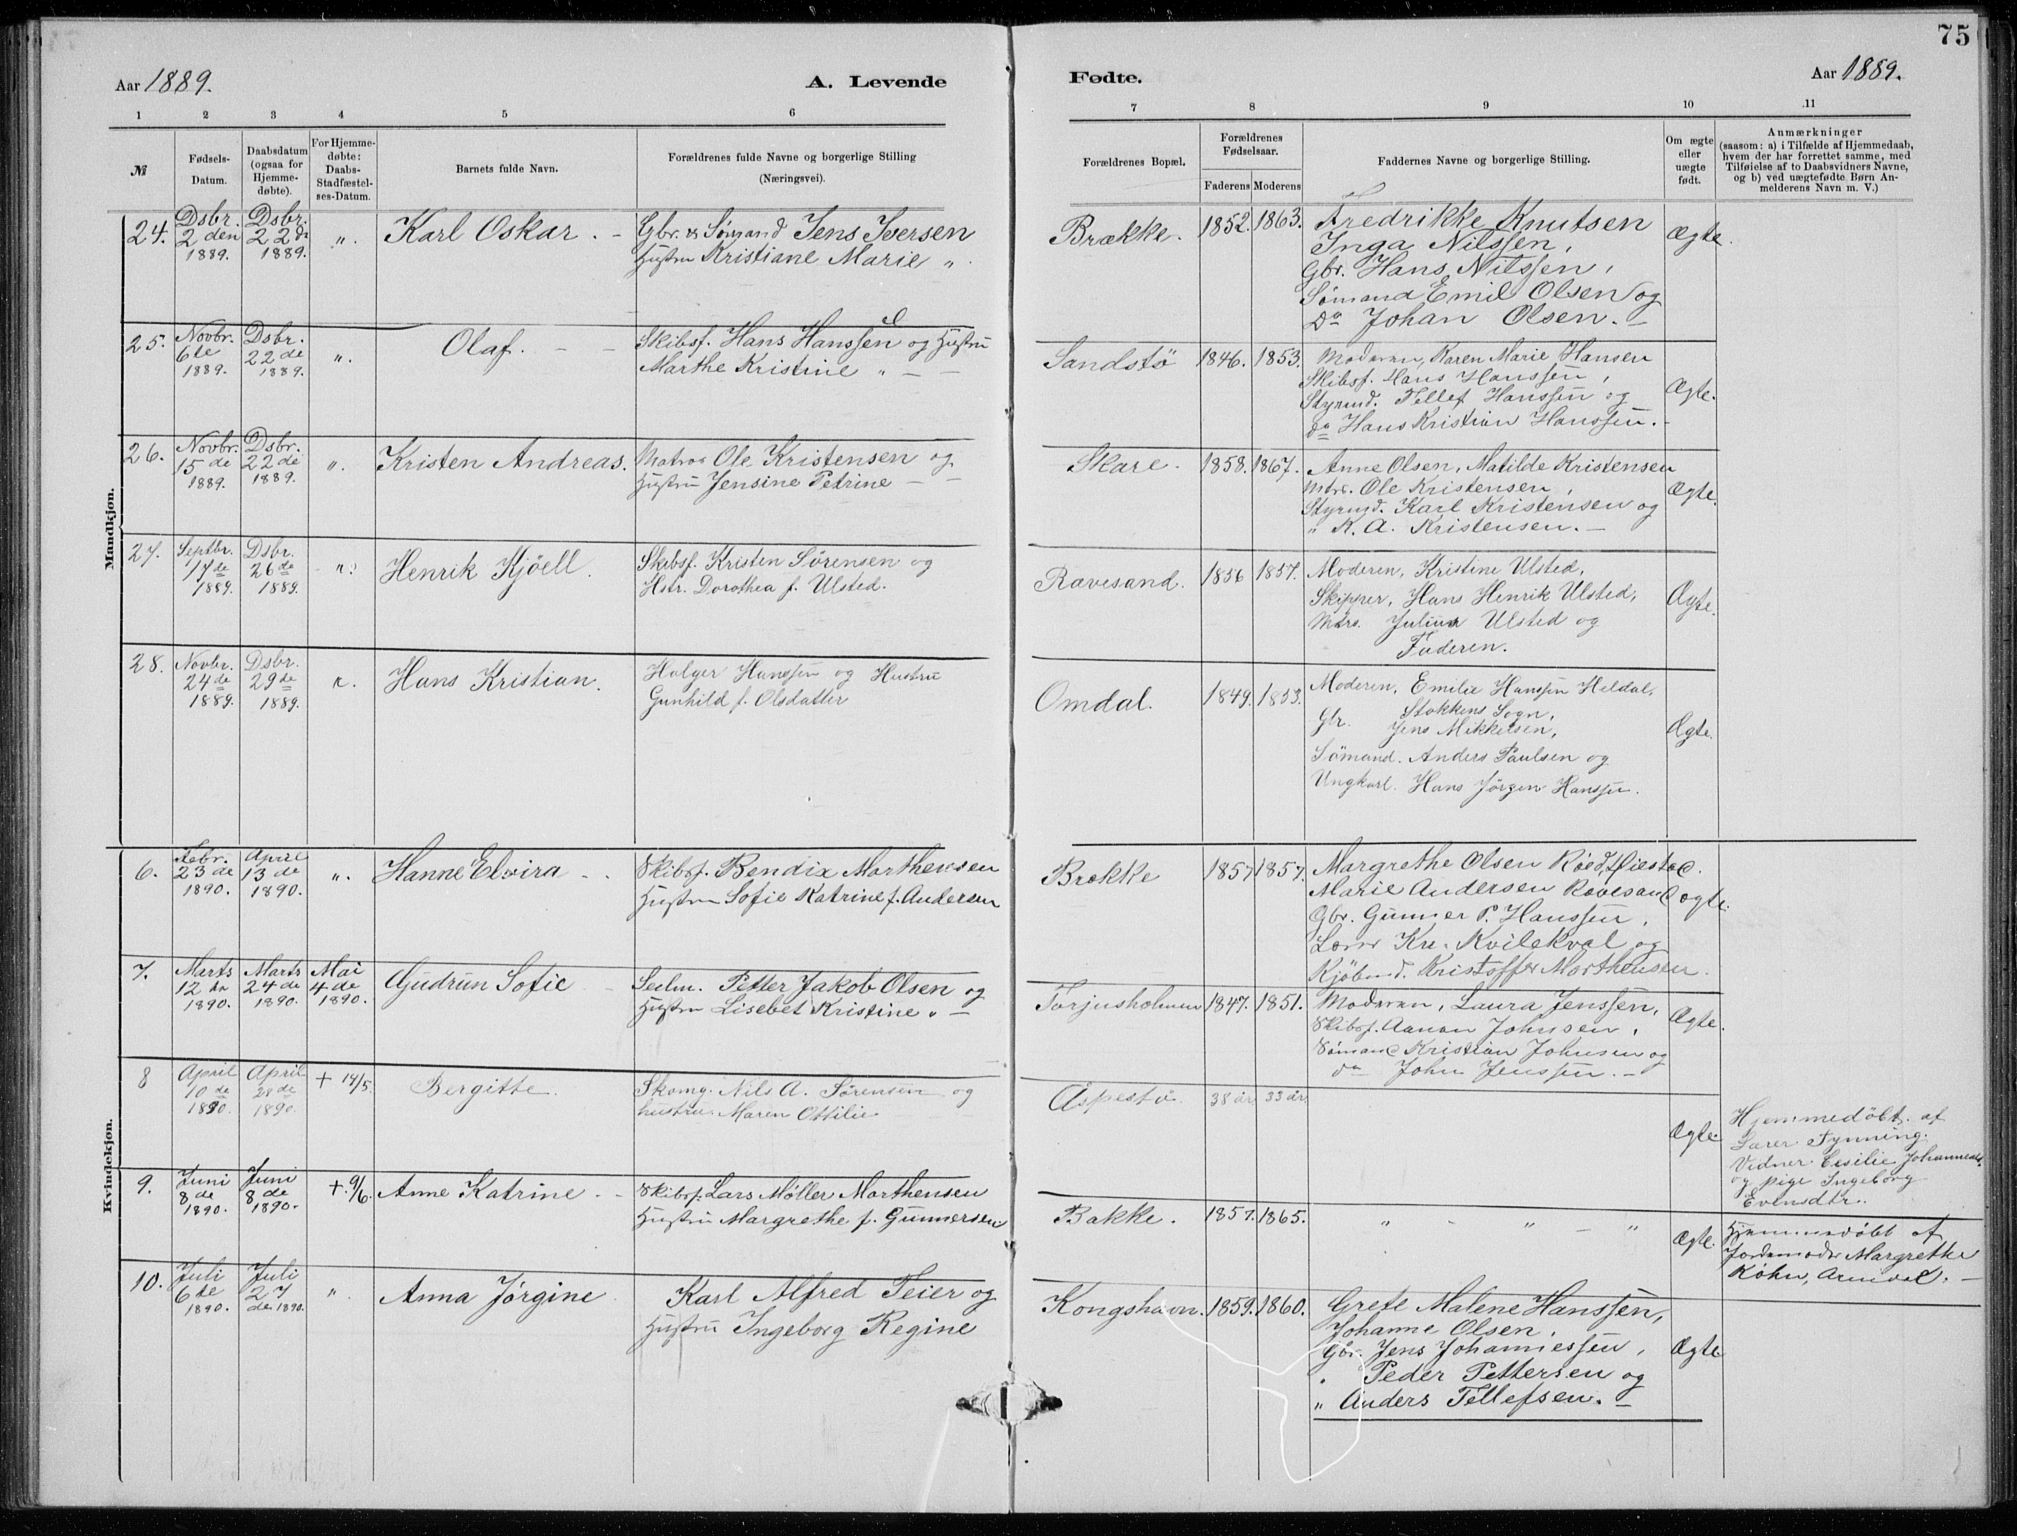 75
Aar 1889.
A. Levende
Fødte.
Aar 1889.
1 2 3 4 5 6
7 8 9 10 11
№
Fødsels-Datum.
Daabsdatum (ogsaa for Hjemme-døbte).
For Hjemme-døbte: Daabs-Stadfæstel-ses-Datum.
Barnets fulde Navn.
Forældrenes fulde Navne og borgerlige Stilling
(Næringsvei).
Forældrenes Bopæl.
Forældrenes Fødselsaar.
Faderens Moderens
Faddernes Navne og borgerlige Stilling.
Om ægte eller uægte født.
Anmærkninger
(saasom: a) i Tilfælde af Hjemmedaab,
hvem der har forrettet samme, med
Tilføielse af to Daabsvidners Navne,
og b) ved uægtefødte Børn An-
melderens Navn m. V.)
Mandkjøn.
24.
Dsbr. 2den 1889.
Dsbr. 22de 1889.
".
Karl Oskar. –
Gbr. & Sømand Jens Iversen
Hustru Kristiane Marie ".
Brække.
1852. 1863.
Fredrikke Knutsen
Inga Nilssen,
Gbr. Hans Nilssen,
Sømand Emil Olsen og
Do Johan Olsen. –
Ægte.
25.
Novbr. 6te 1889.
Dsbr. 22de 1889.
".
Olaf. – –
Skibsf. Hans Hanssen og Hustru
Marthe Kristine " – –
Sandstø
1846. 1853.
Moderen, Karen Marie Hansen
Skibsf. Hans Hanssen,
Styrmd. Tellef Hanssen og
do Hans Kristian Hanssen. –
Ægte.
26.
Novbr. 15de 1889.
Dsbr. 22de 1889.
".
Kristen Andreas.
Matros Ole Kristensen og
Hustru Jensine Petrine – –
Skare.
1858. 1867.
Anne Olsen, Matilde Kristensen
Mtrs. Ole Kristensen,
Styrmd. Karl Kristensen og
" K. A. Kristensen. –
Ægte.
27.
Septbr. 17de 1889.
Dsbr. 26de 1889.
".
Henrik Kjöell.
Skibsf. Kristen Sørensen og
Hstr. Dorothea f. Ulsted.
Ravesand.
1856 1857.
Moderen, Kristine Ulsted,
Skipper, Hans Henrik Ulsted,
Mtrs. Julius Ulsted og
Faderen.
Ægte.
28.
Novbr. 24de 1889.
Dsbr. 29de 1889.
".
Hans Kristian.
Holger Hanssen og Hustru
Gunhild f. Olsdatter
Omdal.
1849. 1853.
Moderen, Emilie Hanssen Heldal,
Stokkens Sogn,
Gbr. Jens Mikkelsen,
Sømand. Anders Paulsen og
Ungkarl. Hans Jørgen Hanssen.
Ægte.
Kvindekjøn.
6.
Febr. 23de 1890.
April 13de 1890.
".
Hanne Elvira – –
Skibsf. Bendix Marthensen
Hustru Sofie Katrine f. Andersen
Brække
1857 1857.
Margrethe Olsen Røed,
Marie Andersen Ravesand
Gbr. Gunner P. Hanssen,
Lærer Kn. Kvilekval og
Kjøbmd. Kristoffer Marthensen.
ægte.
7.
Marts 12te 1890.
Marts 24de 1890.
Mai 4de 1890.
Gudrun Sofie –
Seelm. Petter Jakob Olsen og
Hustru Lisebet Kristine " –
Torjusholmen
1847. 1851.
Moderen, Laura Jenssen,
Skibsf. Aanon Johnsen,
Sømand Kristian Johnsen og
do John Jenssen. –
Ægte.
8
April 10de 1890.
April 28de 1890.
+ 14/5.
Bergitte.
Skomg. Nils A. Sørensen og
hustru Maren Ottilie
Aspestø
38 år 33 år
Ægte.
Hjemmedøbt af
Lærer Fynning.
Vidner Cesilie Johannesd.
og pige Ingeborg
Evensdtr.
9.
Juni 8de 1890.
Juni 8de 1890.
+ 9/6.
Anne Katrine – –
Skibsf. Lars Møller Marthensen
Hustru Margrethe f. Gunnersen
Bakke.
1857. 1865.
" – " – "
Ægte.
Hjemmedøbt af
Jordemoder Margrethe
Køhn, Arendal. –
10.
Juli 6te 1890.
Juli 27de 1890.
"
Anna Jørgine
Karl Alfred Feier og
Hustru Ingeborg Regine
Kongshavn.
1859. 1860.
Grete Malene Hanssen,
Johanne Olsen,
Gbr. Jens Johannessen,
" Peder Pettersen og
" Anders Tellefsen. –
Ægte